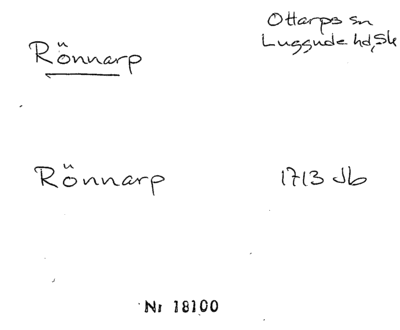 Rönnarp
Ottarps sn
Luggude hd, Sk
Rönnarp
1713 Jb
Nr 18100